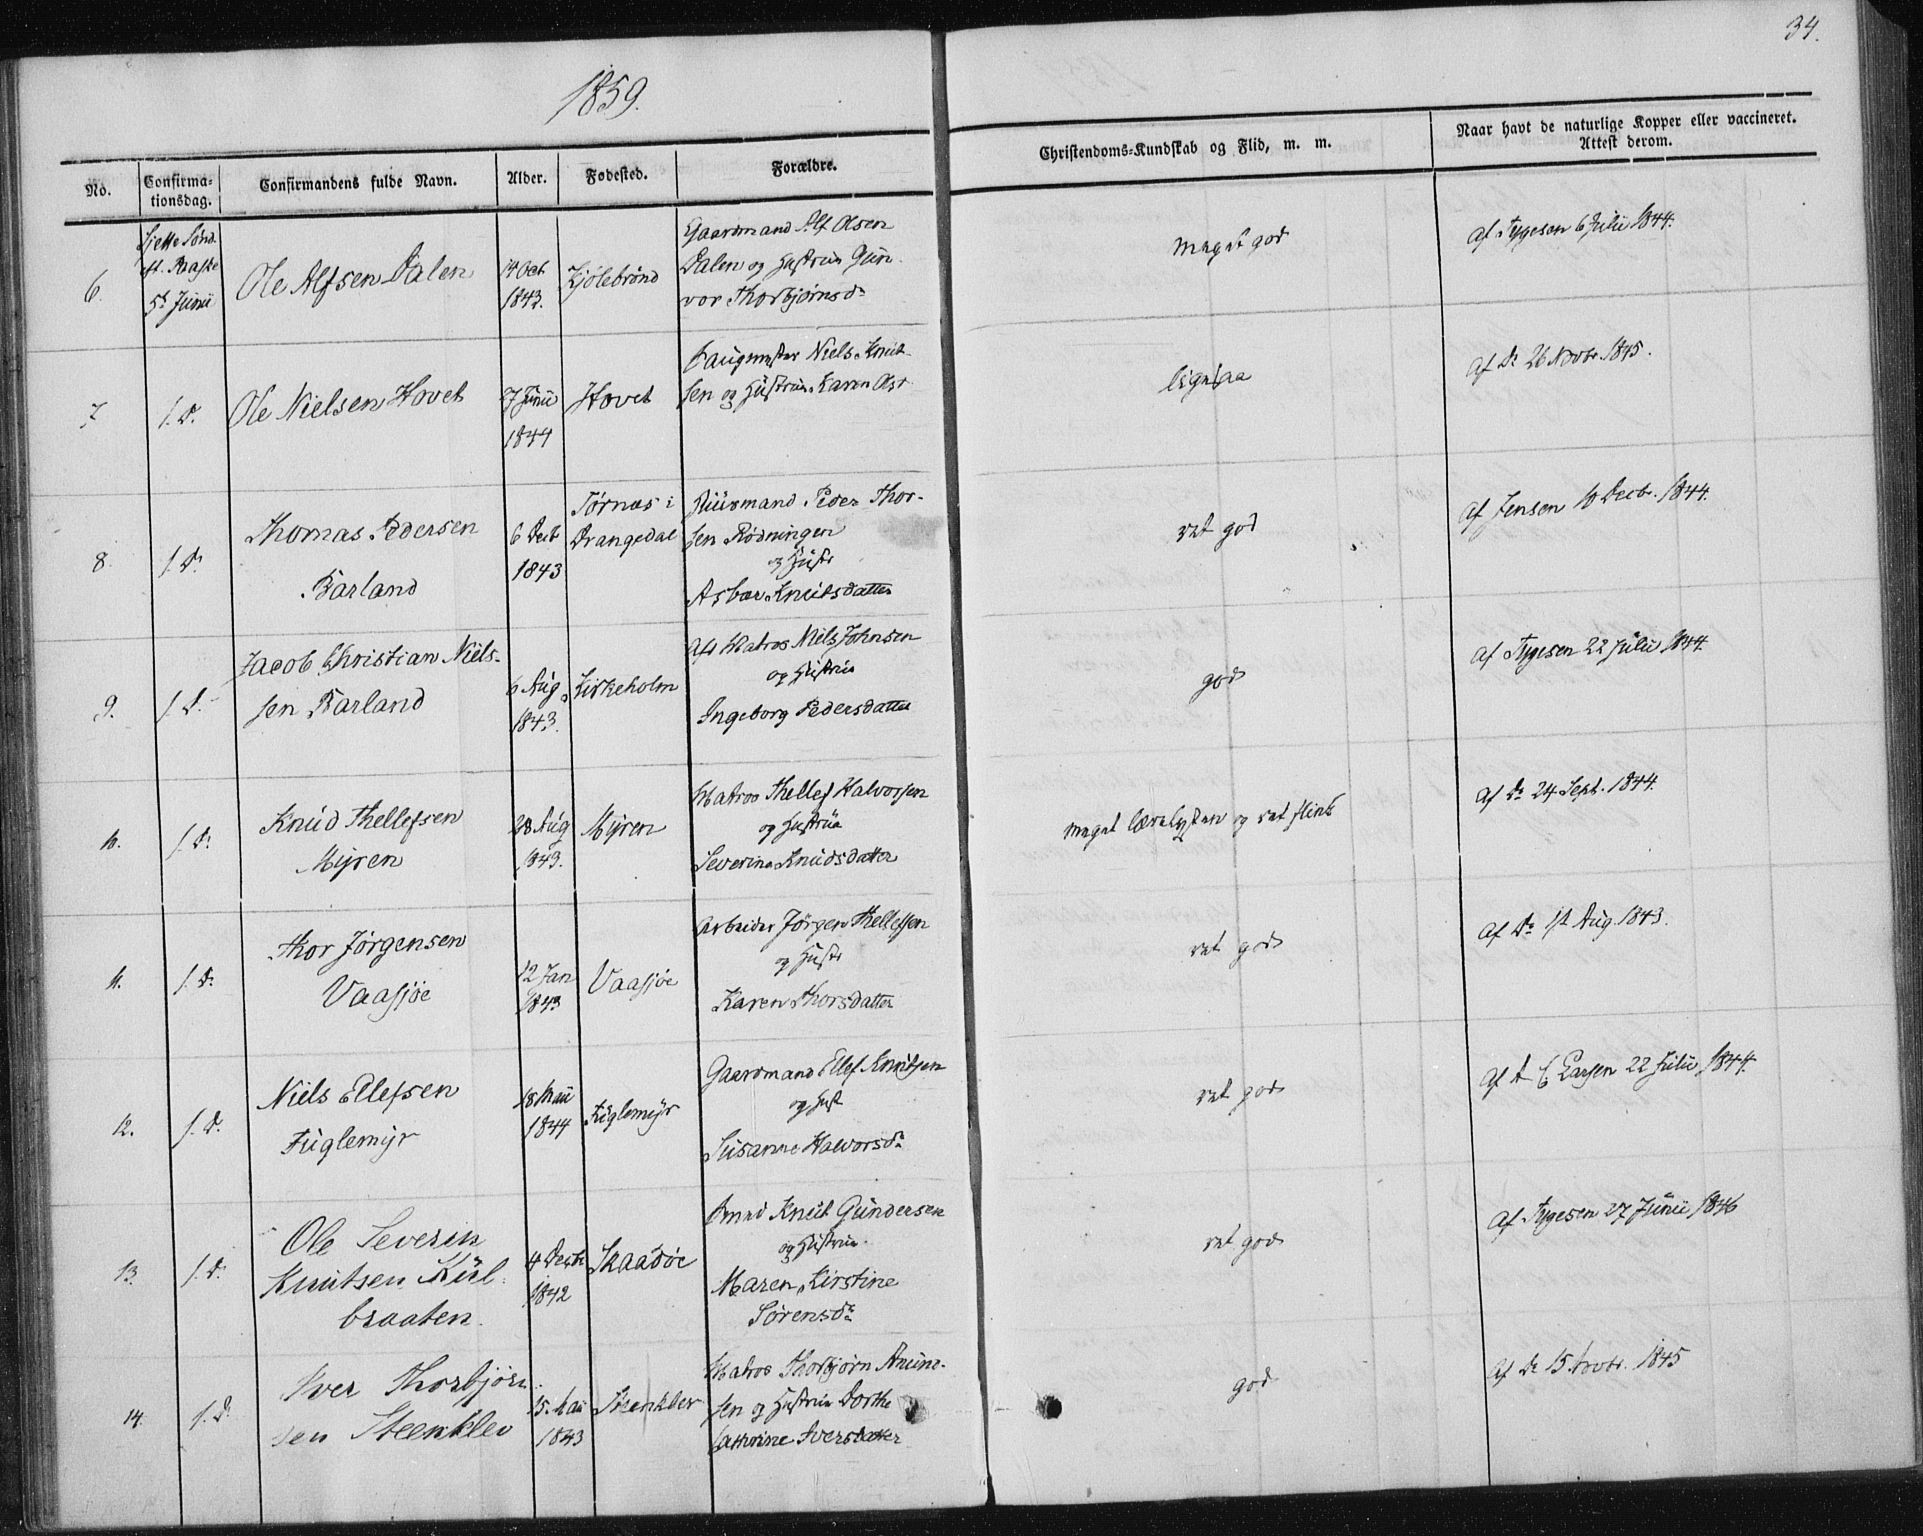 34.
1859.
No.
Confirma-
tionsdag.
Confirmandens fulde Navn.
Alder.
Fødested.
Forældre.
Christendoms-Kundskab og Flid, m. m.
Naar havt de naturlige Kopper eller vaccineret.
Attest derom.
6.
Sjette Sønd.
eft. Paaske
5t Junii
Ole Alfsen Dalen
14 Oct
1843.
Kjølebrønd
Gaardmand Alf Olsen
Dalen og Hustrue Gun-
vor Thorbjørnsdr
Meget god
Af Tygesen 6 Julii 1844.
7
s. D.
Ole Nielsen Hovet
7 Junii
1844
Hovet
Niels Knut-
sen og Hustrue Karen
ligesaa
Af Do 26 Novbr. 1845.
8.
s. D.
Thomas Pedersen
Barland
6 Decb
1843
Tørnæs i
Drangedal
Huusmand Peder Thor-
sen Rødningen
og Hustr
Asbær Knutsdatter
ret god
Af Jensen 10 Decbr. 1844.
9.
s. D.
Jacob Christian Niel-
sen Barland
6 Aug
1843.
Kirkeholm
Afd Matros Niels Johnsen
og Hustrue
Ingeborg Pedersdatter
god
Af Tygesen 22 Julii 1844.
10.
s. D.
Knud Thellefsen
Myren
28 Aug
1843.
Myren
Matros Thellef Halvorsen
og Hustrue
Severine Knudsdatter
Meget lærelysten og ret flink
Af Do 24 Sept. 1844.
11.
s. D.
Thor Jørgensen
Vaasjøe
12 Jan
1843
Vaasjøe
Arbeider Jørgen Thellefsen
og Hustr
Karen Thorsdatter
ret god
Af Do 1st Aug. 1843.
12.
s. D.
Niels Ellefsen
Fuglemyr
18 Maii
1844
Fuglemyr
Gaardmand Ellef Knutsen
og Hust
Susanne Halvorsdr
ret god
Af Larsen 22 Julii 1844.
13.
s. D.
Ole Severin
Knutsen Kiil-
braaten.
4 Decbr
1842
Skaadøe
Knut Gundersen
og Hustrue
Maren Kirstine
Sørensdr
ret god
Af Tygesen 27 Junii 1846
14.
s. D.
Iver Thorbjørn-
sen Steenklev
15. Maii
1843
Steenklev
Matros Thorbjørn Anund-
sen og Hustrue Dorthe
Cathrine Iversdatter
god
Af Do 15 Novbr. 1845